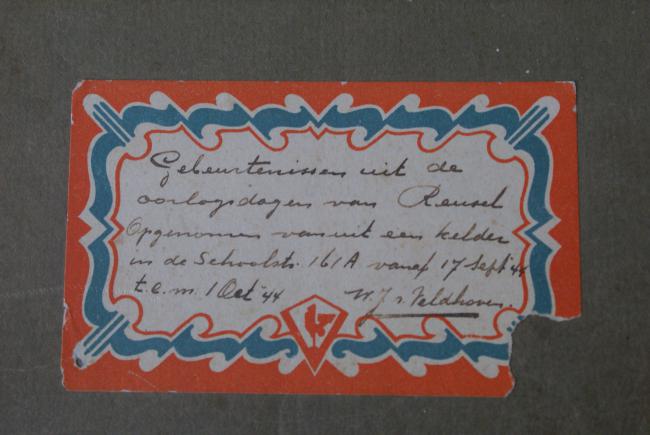 Gebeurtenissen uit de
oorlogsdagen van Reusel
Opgenomen vanuit een kelder
in de Schoolstr. 161A vanaf 17 Sept '44
t.e.m. 1 Oct '44 W.J v. Veldhoven.